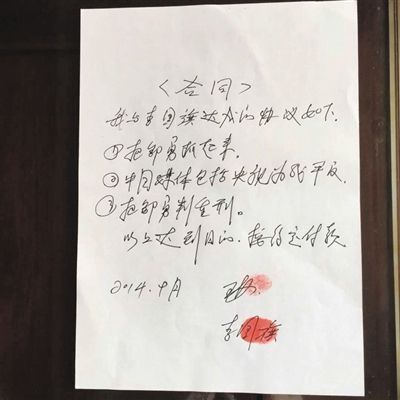 〈合同〉
我与李国达成的协议如下.
①把邹勇抓起来.
②中国媒体包括央视为我平反.
③把邹勇判重刑。
以上达到目的. 按约定付款
2014. 月
李国